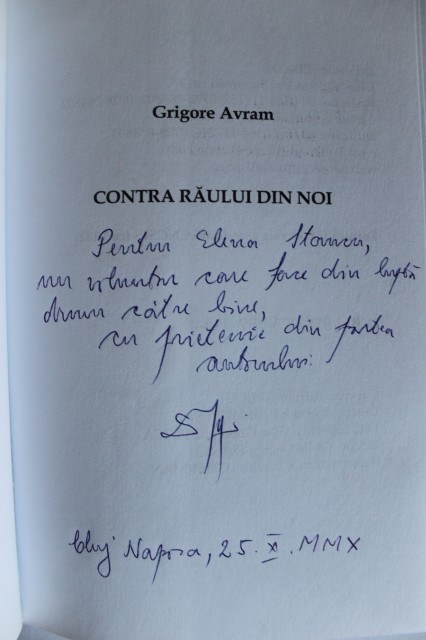 Grigore Avram
CONTRA RĂULUI DIN NOI
Pentru Elena Stancu,
un care face din luptă
drum către bine,
cu prietenie din partea
autorului.
Cluj Napoca, 25.XI.MMX